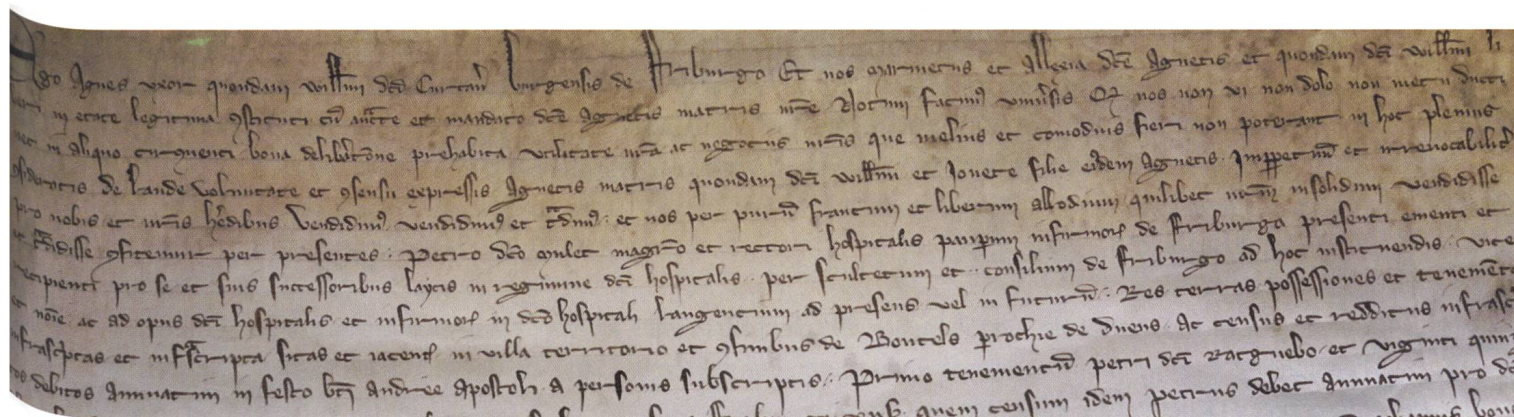 Ego Agnes uxor quondam Willmi dcti Curtan burgensis de Friburgo Et nos Mermetus et Allexia dcte Agnetis et quondam dcti Willmi li
beri in etate legitima 9stituti cu auctte et mandato dcte Agnetis matris nre Notum facim9 univsis Qz nos non vi non dolo non metu ducti
nec in aliquo circumventi bona delibatone prehabita utilitate nra ac negociis nris que melius et comodius fieri non poterant in hoc plenius
9sideratis de laude voluntate et 9sensu expressis Agnetis matris quondam dcti Willmi et Jonete filie eidem Agnetis Imppetuu et irrevocabilit
pro nobis et nris hedibus vendidim9 vendidim9 et tdim9 et nos per puru francum et liberum allodium quilibet nrm insolidum vendidisse
ac tdidisse 9fitemur per presentes Petro dcto magro et rectori hospitalis paupum infirmor de Friburgo presenti ementi et
recipienti pro se et suis successoribus laycis in regimine dcti hospitalis per scultetum et consilium de Friburgo ad hoc instituendis vice
et noie ac ad opus dcti hospitalis et infirmor in dcto hospitali languentium ad presens vel in futuru Res terras possessiones et tenementa
infrascptas et infscripta sitas et iacent in villa territorio et 9finibus de prochie de Duens Ac census et redditus infrasc
tos debitos annuatim in festo bti Andree apostoli a personis subscriptis Primo tenementu petri dcti et viginti quin
quem censum idem petrus debet annuatim pro